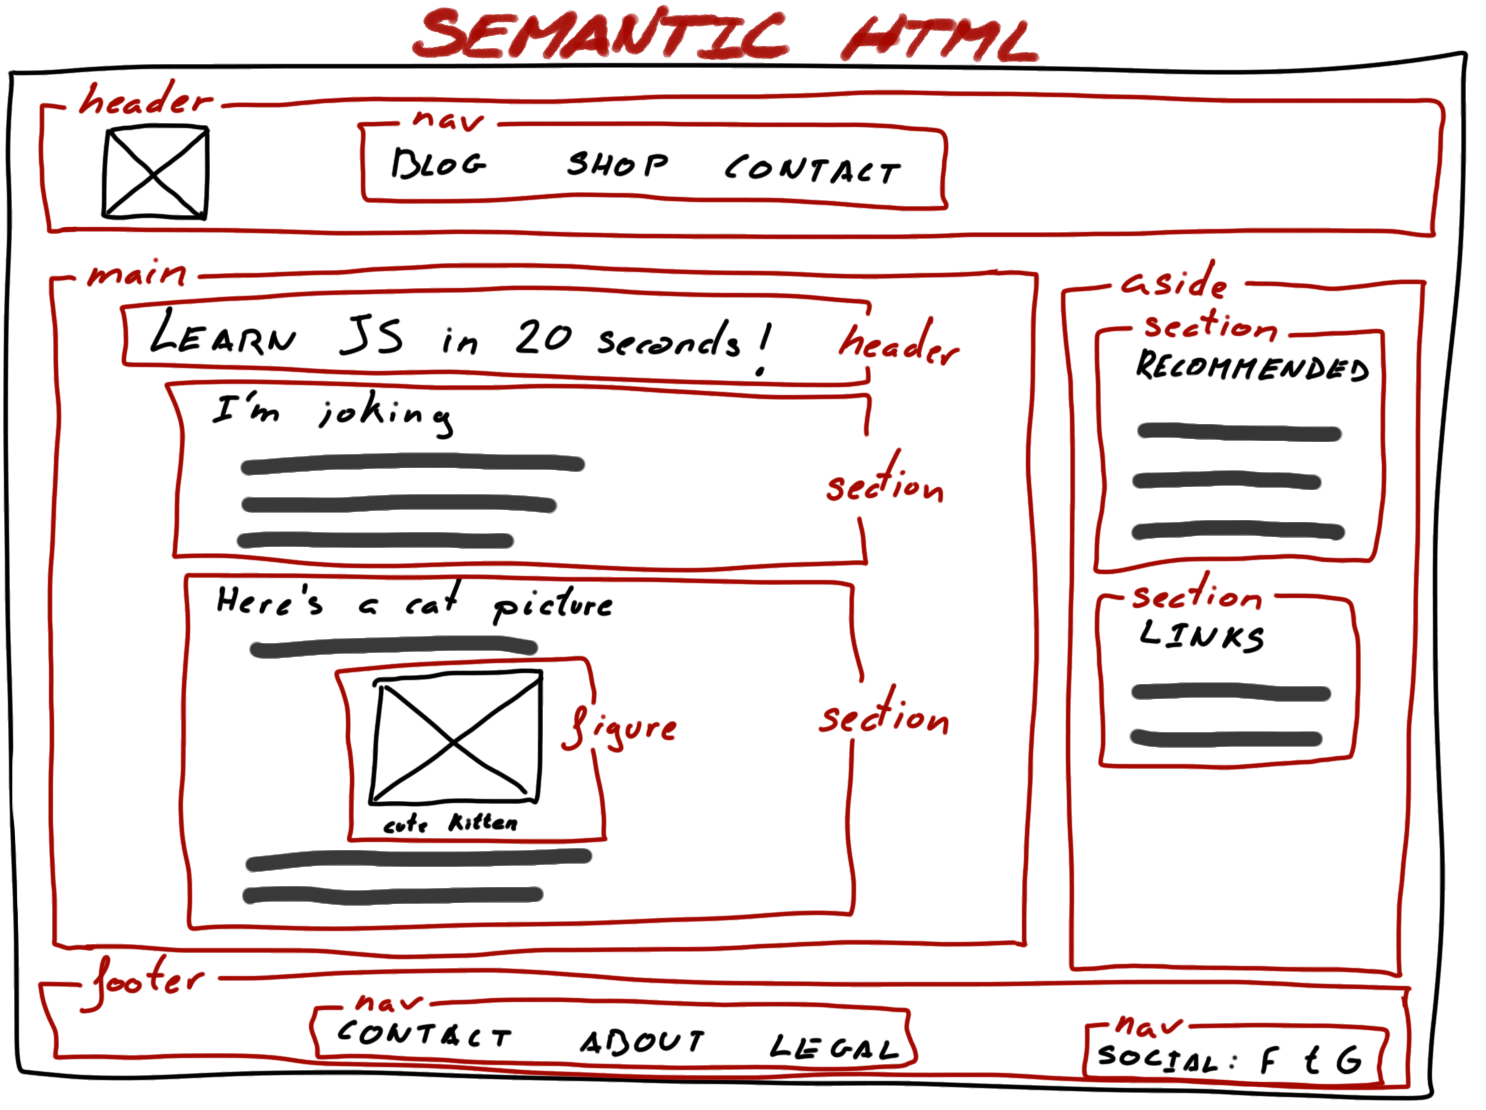 SEMANTIC HTML
header
nav
BLOG SHOP CONTACT
main
LEARN JS in 20 seconds!
header
I'm joking
section
Here's a cat picture
figure
cute kitten
section
aside
section
RECOMMENDED
section
LINKS
footer
nav
CONTACT ABOUT LEGAL
nav
SOCIAL: F t G